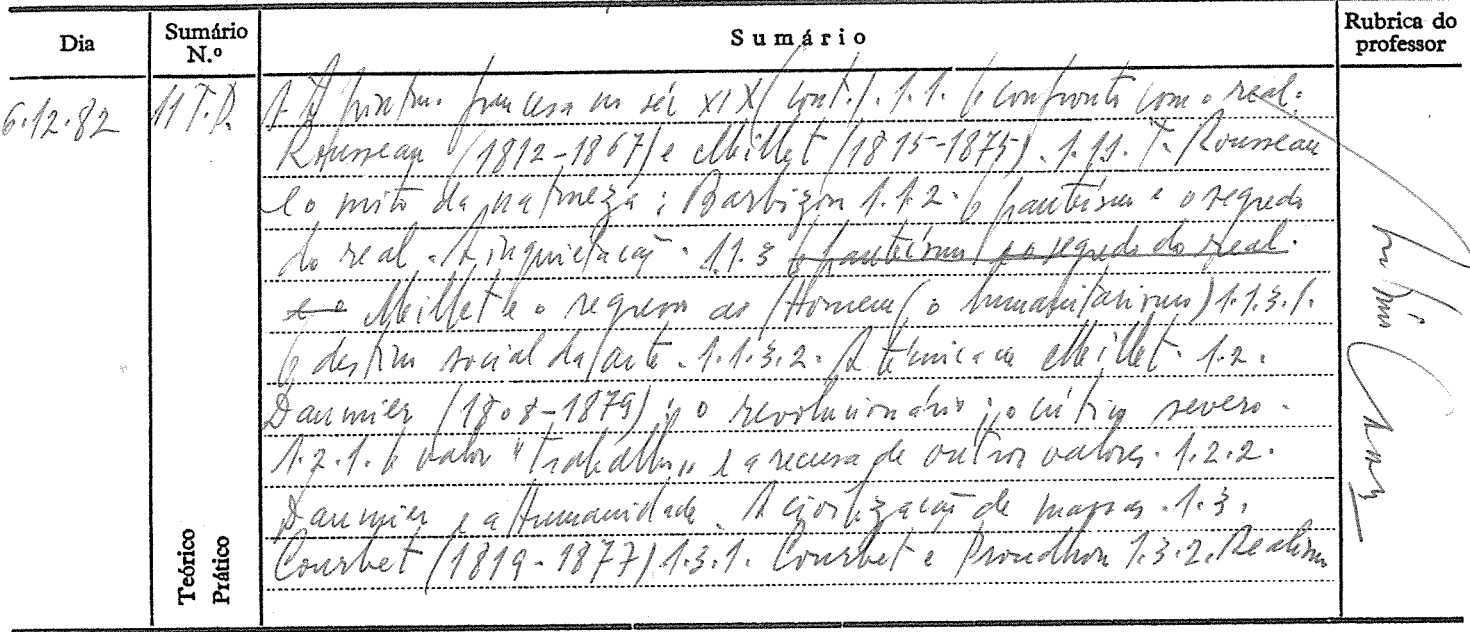 Dia Sumário N.º Sumário Rubrica do professor
6.12.82 11 T.P. 1. A pintura francesa no séc XIX (cont.). 1.1. O confronto com o real.
Rousseau (1812-1867) e Millet (1815-1875). 1.1.1. T. Rousseau
e o mito da natureza: Barbizon 1.1.2. O panteísmo e o segredo
do real. A inquietação. 1.1.3 O panteísmo e o segredo do real.
e o Millet e o regresso ao Homem (o humanitarismo) 1.1.3.1.
O destino social da arte. 1.1.3.2. A técnica em Millet. 1.2.
Daumier (1808-1879): o revolucionário; o crítico severo.
1.2.1. O valor "Trabalho" e a recusa de outros valores. 1.2.2.
Daumier e a Humanidade. A civilização de massas. 1.3.
Courbet (1819-1877) 1.3.1. Courbet e Proudhon 1.3.2. Realismo
Teórico
Prático